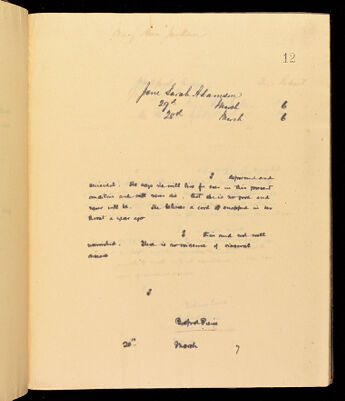 12
Jane Sarah Adamson
29th March 6
28th March 6
I depressed and
suicidal. She says she will live for ever in this present
condition and will never die, that she is no good and
never will be. She believes a cord snapped in her
throat a year ago
I thin and not well
nourished. There is no evidence of visceral
disease
I
Bedford Pierce
20th March 7